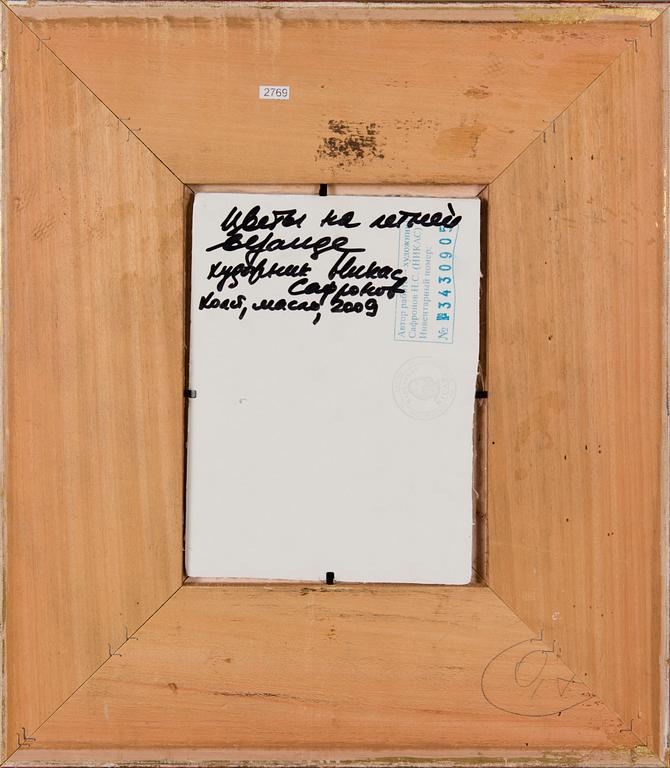 2769
Цветы на летней
веранде
художник Никас
Сафронов
Холст, масло, 2009
Автор работы художник
Сафронов Н.С. (НИКАС)
Инвентарный номер:
№ 3430905